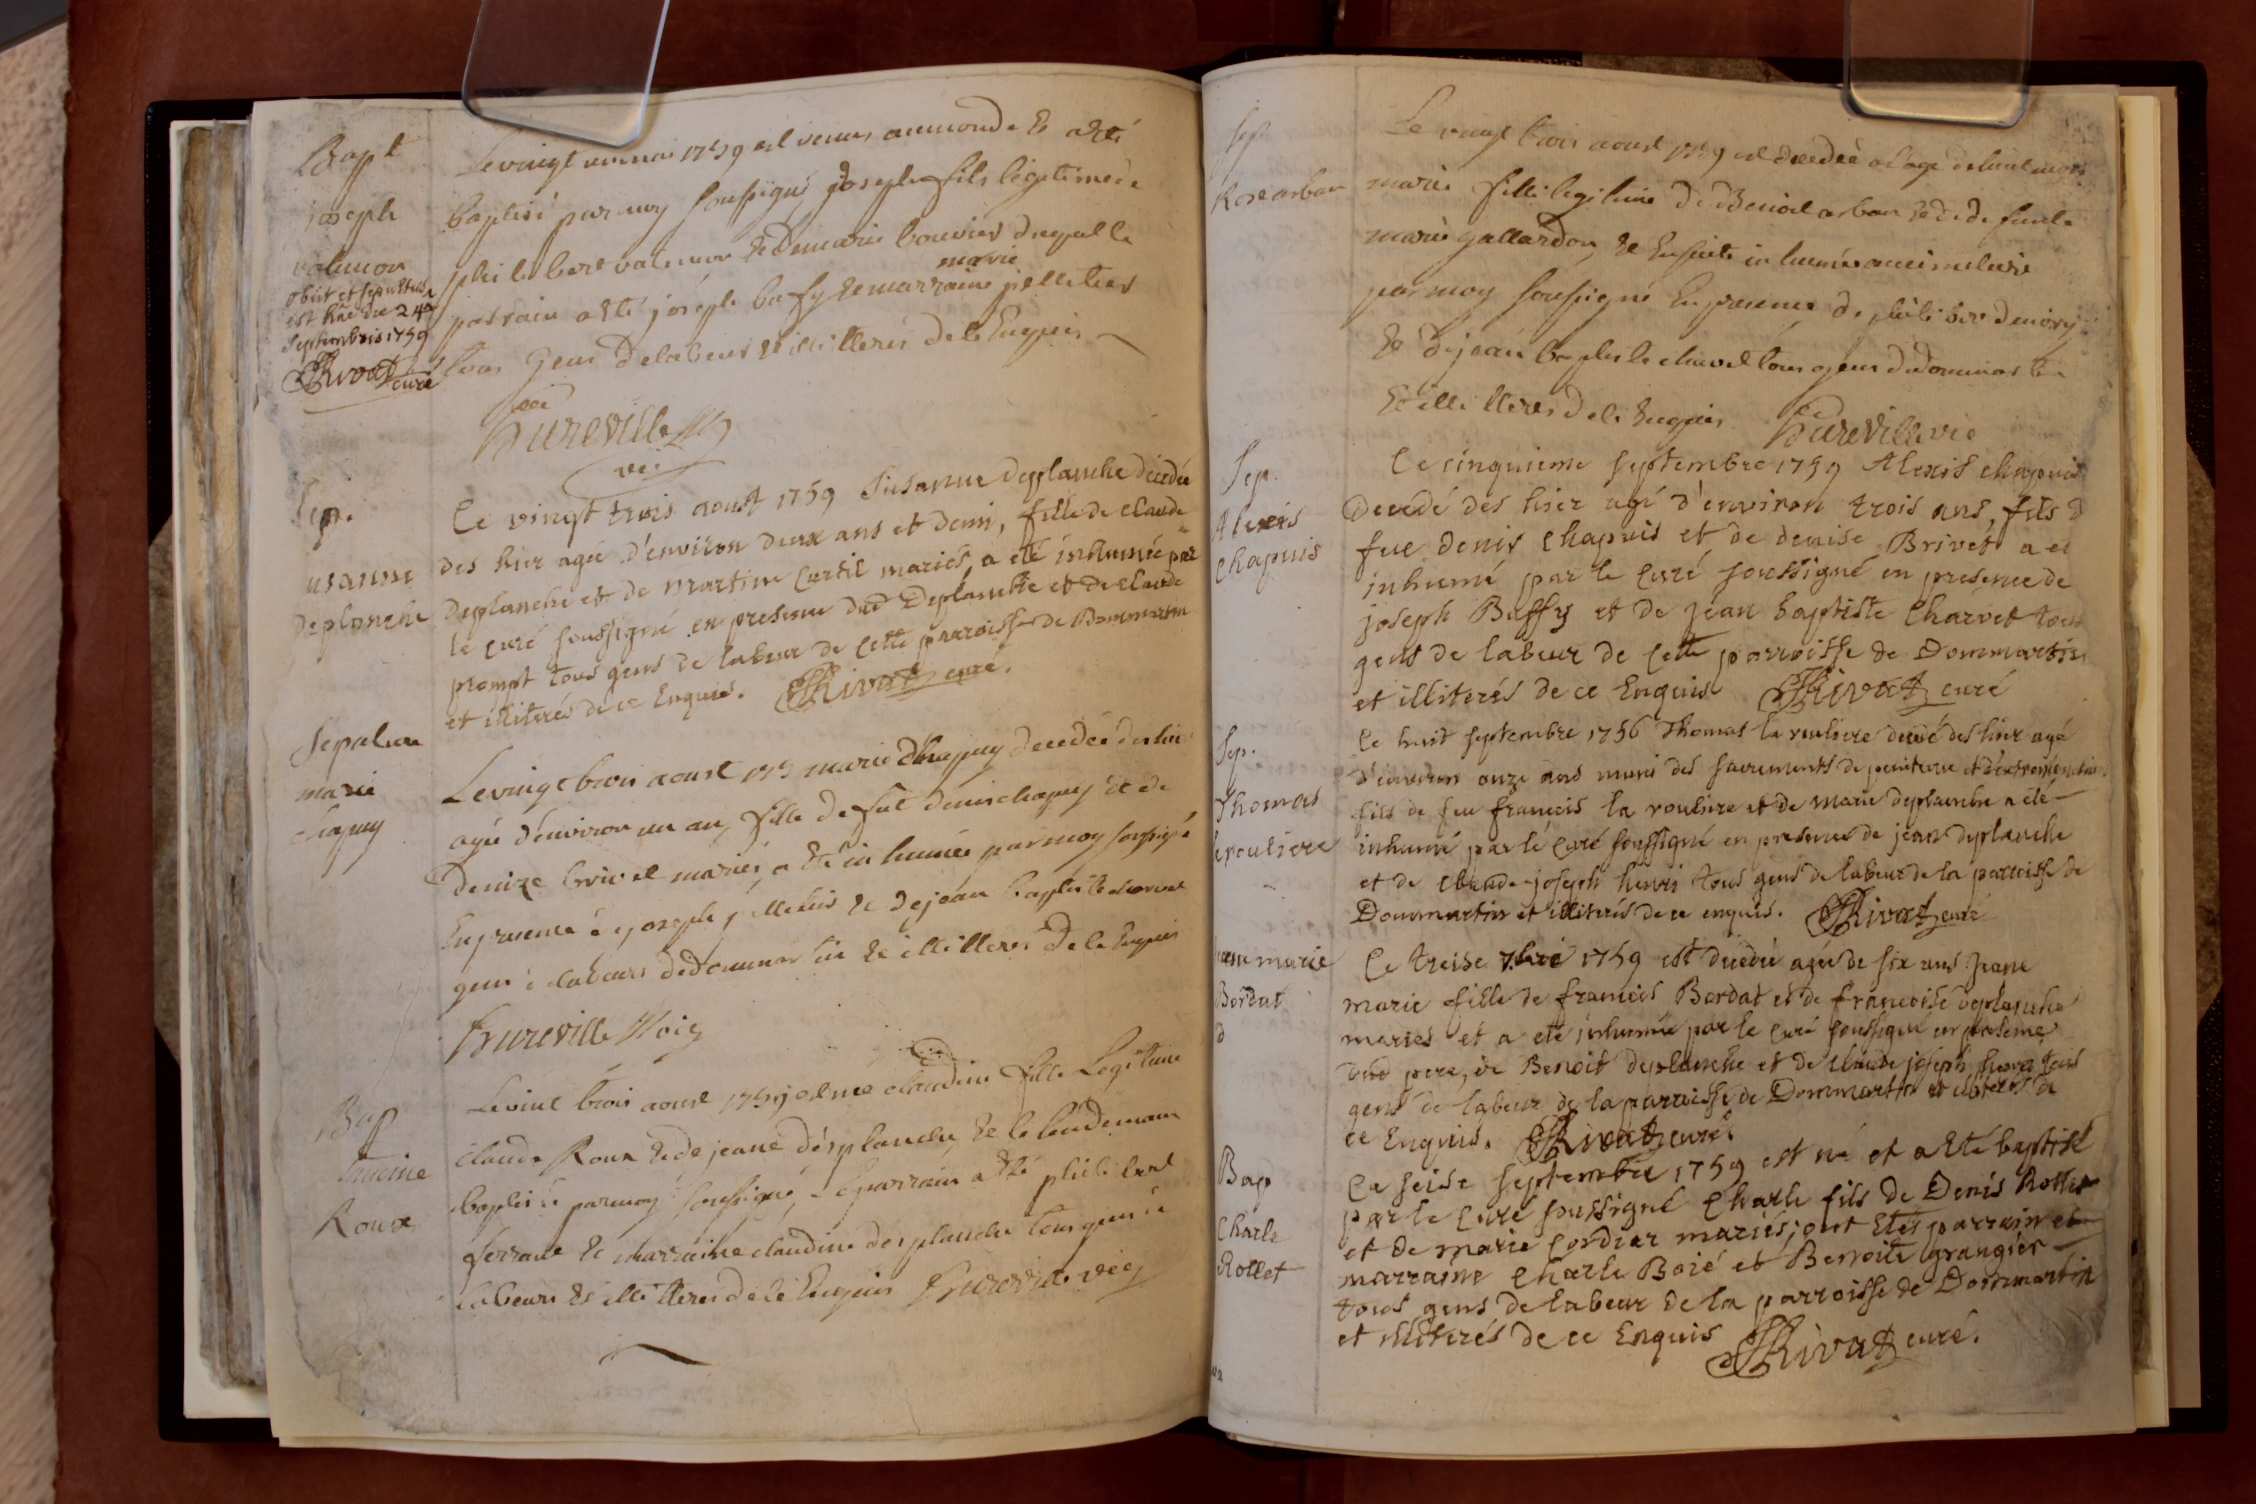 Bapt
joseph
valençon
obiit et sepultus
est hac die 24a
Septembris 1759
Rivat curé
Le vingt un mai 1759 est venu au monde & a été
baptisé par moy soussigné joseph fils légitime de
philibert valençon & de marie bouvier duquel le
marie
parrain a été joséph bufy & marraine pelletier
tous gens de labeur & illitterés de ce Enquis
Hureville
vic
Sep.
usanne
Deplanche
Le vingt trois aoust 1759 Susanne Deplanche décedée
des hier agée d'environ deux ans et demi, fille de claude
Deplanche et de martine Curtil mariés, a été inhumée par
le curé soussigné en presence dud Deplanche et de claude
prompt tous gens de labeur de cette parroisse de Dommartin
et illiterés de ce Enquis. Rivat curé.
Sepulture
marie
chapuy
Le vingt trois aoust 175 marie Chapuy decedée des hier
agée d'environ un an, fille de fut denis chapuy & de
Denize brivet mariés, a été in humée par moy soussigné
En presence de joseph pelletier & de jean baptiste charvet
gens de labeurs de dommartin & illitterés de ce Enquis
Hureville Vic
Bap
laudine
Roux
Le vint trois aoust 1759 est née claudine fille Legitime
claude Roux & de jeane désplanche, & le lendemain
baptisée par moy soussigné, Le parrain a été philibert
ferrand & marraine claudine desplanche tous gens de
labeurs & illitteres de ce Enquis Hureville vic
Sep
Rose arban
Le vingt trois aoust 1759 est decedée a l'age de huit mois
marie fille legitime de Benoit arban & de defunte
marie gallardon, & Ensuite in humée au cimetiere
par moy soussigné En presence de philiber
& de jean baptiste charvet tous gens de dommartin
& illitteres de ce Enquis Hureville vic
Sep.
Alexis
Chapuis
Le cinquieme septembre 1759 Alexis Chapuis
decedé des hier agé d'environ trois ans, fils d
fue denis Chapuis et de denise Brivet a et
inhumé par le Curé soussigné en presence de
joseph Buffy et de jean baptiste Charvet tous
gens de labeur de cette parroisse de Dommartin
et illiterés de ce Enquis Rivat curé
Sep.
Thomas
lerouliere
Le huit septembre 1756 Thomas la rouliere decedé des hier agé
d'environ onze ans muni des sacrements de penitence et d'extreme onction
fils de feu francois la rouliere et de marie deplanche a été
inhumé par lé curé soussigné en presence de jean deplanche
et de claude joseph henri tous gens de labeur de la parroisse de
Dommartin et illiterés de ce enquis. Rivat curé
jeanne marie
Bordat
d
Le treise 7bre 1759 est décedée agée de six ans Jeane
marie fille de francois Bordat et de francoise deplanche
mariés et a eté inhumée par le curé soussigné en presence
dud pere, de Benoit deplanche et de claude joseph henri tous
gens de labeur de la parroisse de Dommartin et illiterés de
ce Enquis. Rivat curé.
Bap
Charle
Rollet
Le seise septembre 1759 est né et a été baptisé
par le curé soussigné Charle fils de Denis Rollet
et de marie Cordier mariés; ont étés parrain et
marraine Charle Boié et Benoite grangier
tous gens de labeur de la parroisse de Dommartin
et illiterés de ce Enquis Rivat curé.